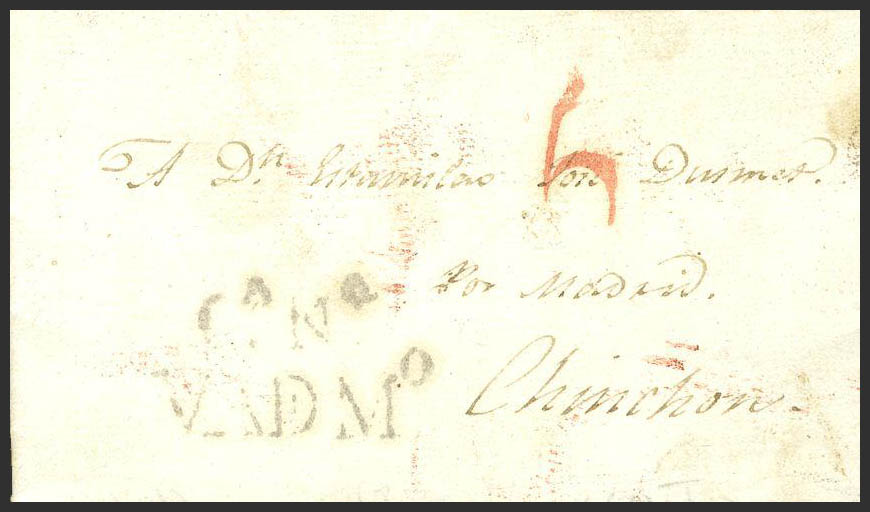 A Dⁿ Jose Dusmet.
Por Madrid.
Cᴬ. Nᵃ
VADMº
Chinchon.